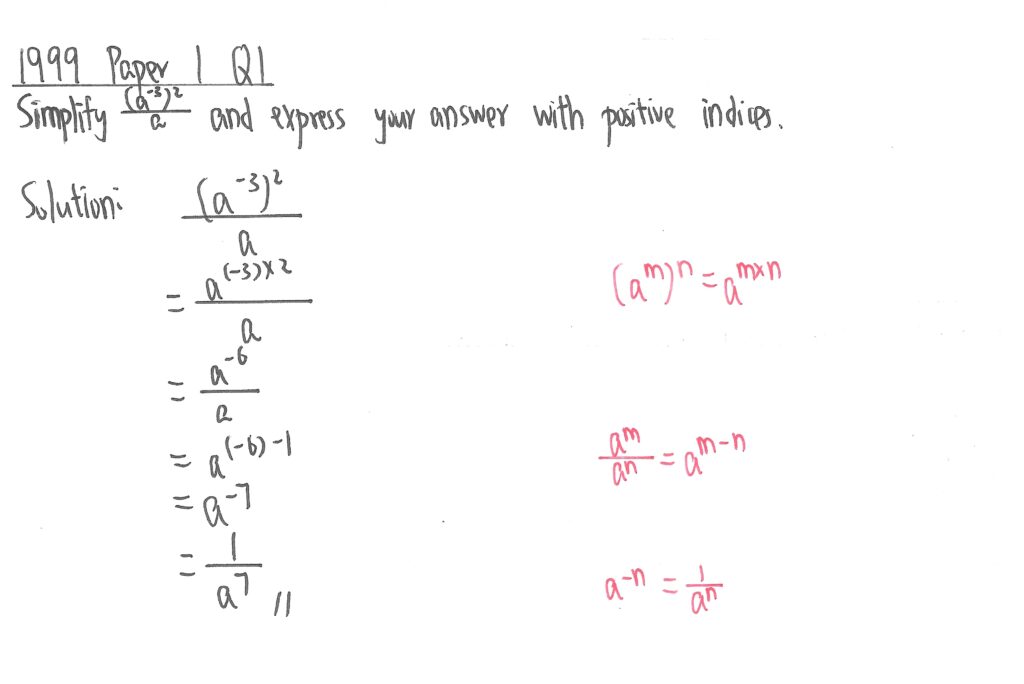 1999 Paper 1 Q1
Simplify (a⁻³)²/a and express your answer with positive indices.
Solution: (a⁻³)²/a
= a⁽⁻³⁾ˣ²/a (aᵐ)ⁿ = aᵐˣⁿ
= a⁻⁶/a
= a⁽⁻⁶⁾⁻¹ aᵐ/aⁿ = aᵐ⁻ⁿ
= a⁻⁷
= 1/a⁷ // a⁻ⁿ = 1/aⁿ